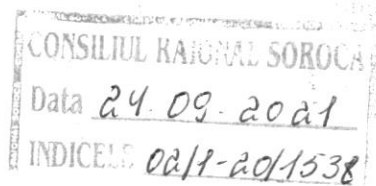 CONSILIUL RAIONAL SOROCA
Data 24.09.2021
INDICELE 02/1-20/1538